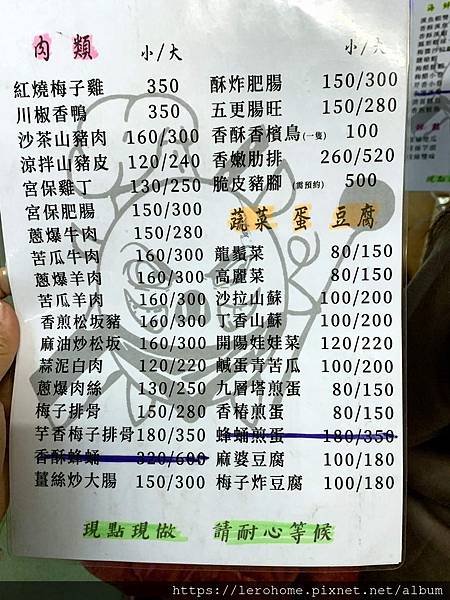 肉類 小/大
紅燒梅子雞 350
川椒香鴨 350
沙茶山豬肉 160/300
涼拌山豬皮 120/240
宮保雞丁 130/250
宮保肥腸 150/300
蔥爆牛肉 150/280
苦瓜牛肉 160/300
蔥爆羊肉 160/300
苦瓜羊肉 160/300
香煎松坂豬 160/300
麻油炒松坂 160/300
蒜泥白肉 120/220
蔥爆肉絲 130/250
梅子排骨 150/280
芋香梅子排骨 180/350
香酥蜂蛹 320/600
薑絲炒大腸 150/300
小/大
酥炸肥腸 150/300
五更腸旺 150/280
香酥香檳鳥(一隻) 100
香嫩肋排 260/520
脆皮豬腳 (需預約) 500
蔬菜 蛋 豆腐
龍鬚菜 80/150
高麗菜 80/150
沙拉山蘇 100/200
丁香山蘇 100/200
開陽娃娃菜 120/220
鹹蛋青苦瓜 100/200
九層塔煎蛋 80/150
香椿煎蛋 80/150
蜂蛹煎蛋 180/350
麻婆豆腐 100/180
梅子炸豆腐 100/180
現點現做 請耐心等候
https://lerohome.pixnet.net/album